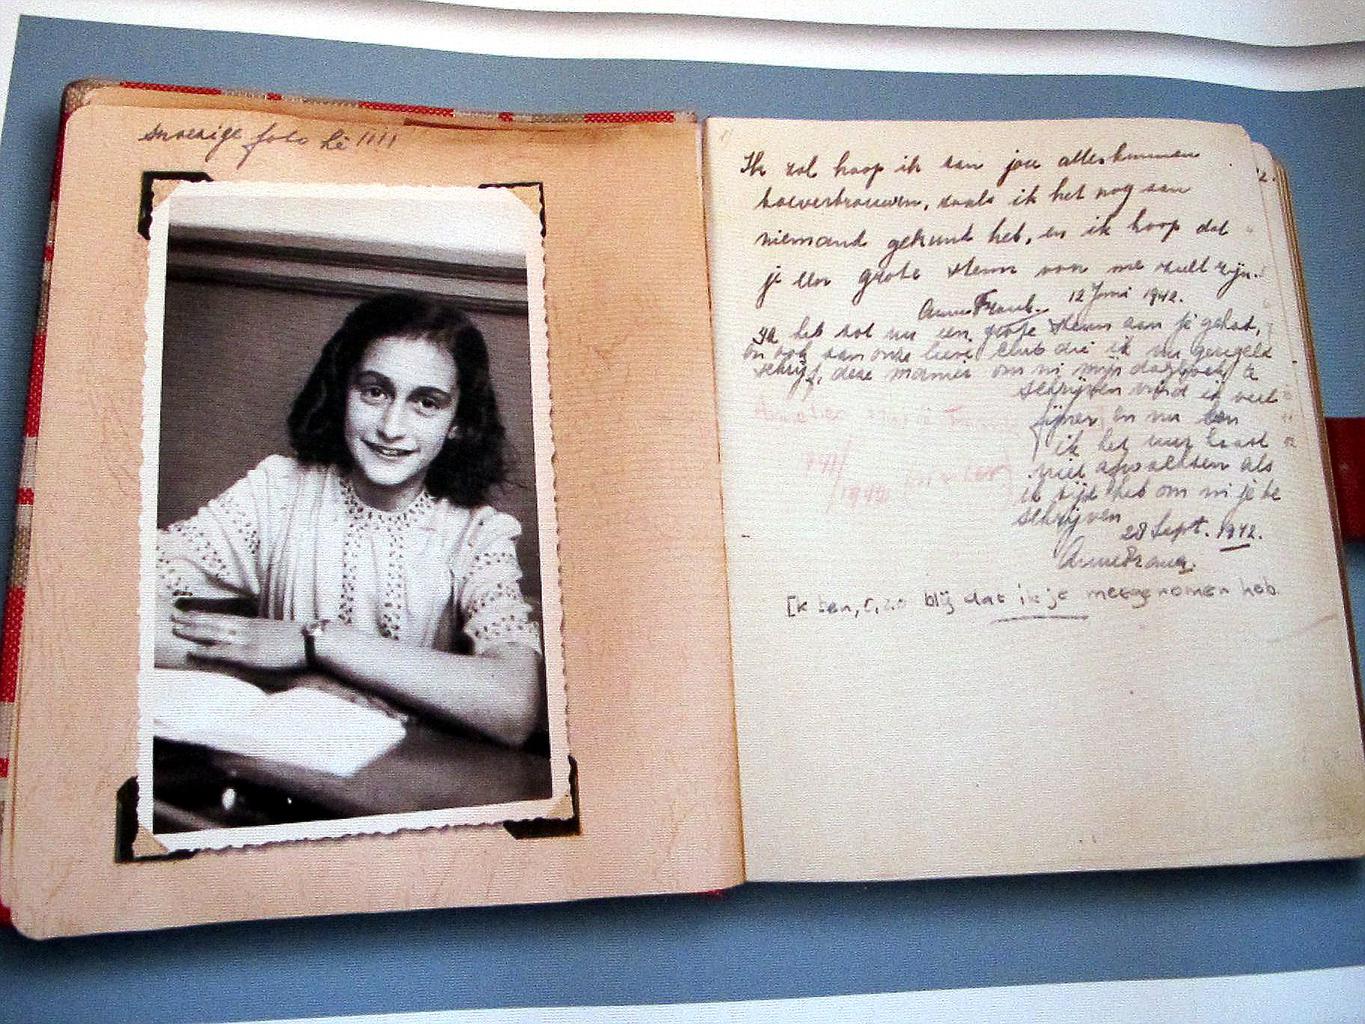 snoezige foto hè!!!!
Ik zal hoop ik aan jou alles kunnen
toevertrouwen, zoals ik het nog aan
niemand gekund heb, en ik hoop dat
je een grote steun voor me zult zijn.
Anne Frank. 12 Juni 1942.
Ik heb tot nu een grote steun aan je gehad,
en ook aan onze lieve club die ik nu geregeld
schrijf, deze manier om in mijn dagboek te
schrijven vind ik veel
fijner en nu kan
ik het uur haast
niet afwachten als
ik tijd heb om in je te
schrijven
28 Sept. 1942.
Anne Frank.
Ik ben, o, zo blij dat ik je meegenomen heb